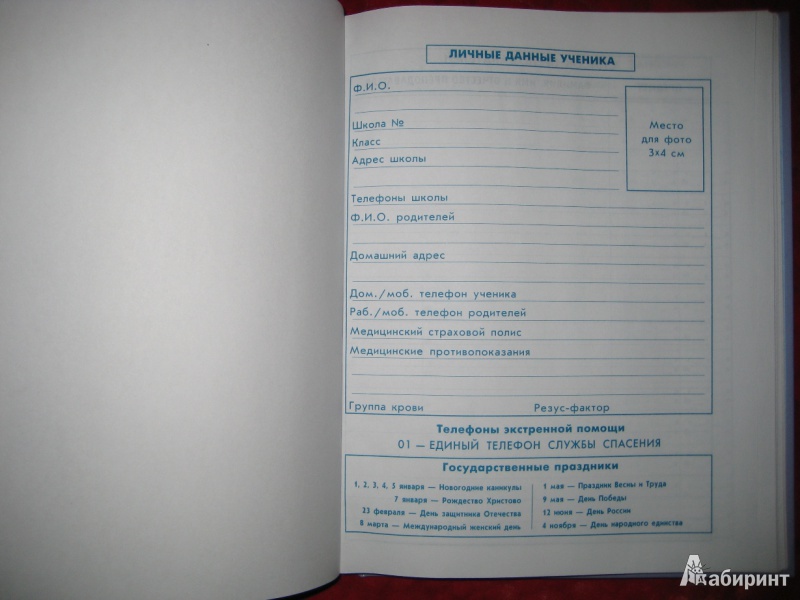 ЛИЧНЫЕ ДАННЫЕ УЧЕНИКА
Ф.И.О.
Школа №
Класс
Адрес школы
Место
для фото
3×4 см
Телефоны школы
Ф.И.О. родителей
Домашний адрес
Дом./моб. телефон ученика
Раб./моб. телефон родителей
Медицинский страховой полис
Медицинские противопоказания
Группа крови Резус-фактор
Телефоны экстренной помощи
01 — ЕДИНЫЙ ТЕЛЕФОН СЛУЖБЫ СПАСЕНИЯ
Государственные праздники
1, 2, 3, 4, 5 января — Новогодние каникулы
7 января — Рождество Христово
23 февраля — День защитника Отечества
8 марта — Международный женский день
1 мая — Праздник Весны и Труда
9 мая — День Победы
12 июня — День России
4 ноября — День народного единства
Лабиринт